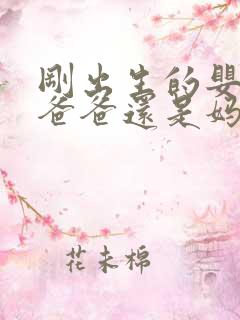 剛出生的嬰
爸爸還是媽
花未棉